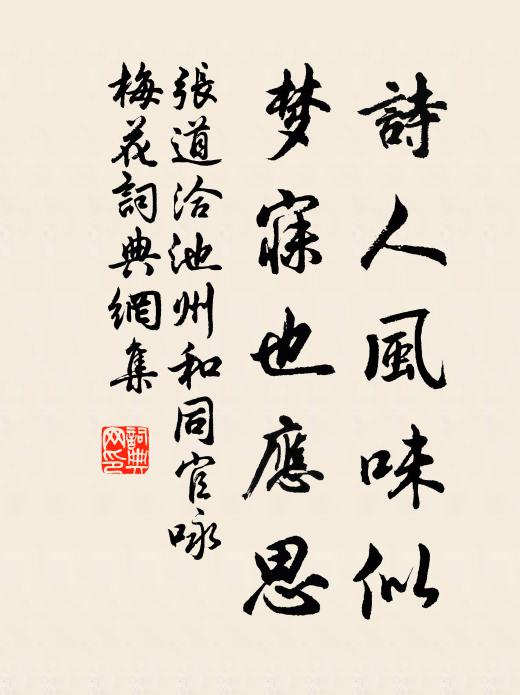 詩人風味似
梦寐也應思
張道洽池州和同官咏
梅花詞典網集
詞典网印